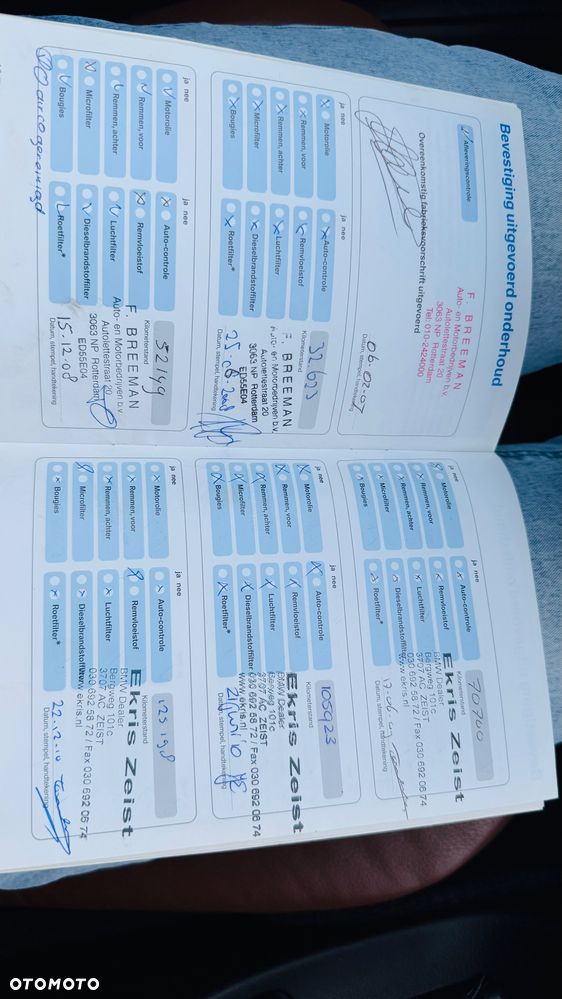 Bevestiging uitgevoerd onderhoud
Afleveringscontrole
F. BREEMAN
Auto- en Motorbedrijven b.v.
Autolettestraat 20
3063 NP Rotterdam
Tel: 010-2424000
Overeenkomstig fabrieksvoorschrift uitgevoerd
Datum, stempel, handtekening
ja nee
ja nee
Motorolie
Auto-controle
Kilometerstand
32623
Remmen, voor
Remvloeistof
Remmen, achter
Luchtfilter
Microfilter
Dieselbrandstoffilter
Bougies
Roetfilter*
F. BREEMAN
Auto- en Motorbedrijven b.v.
Autolettestraat 20
3063 NP Rotterdam
ED55E04
Datum, stempel, handtekening
ja nee
ja nee
Motorolie
Auto-controle
Kilometerstand
52149
Remmen, voor
Remvloeistof
Remmen, achter
Luchtfilter
Microfilter
Dieselbrandstoffilter
Bougies
Roetfilter*
F. BREEMAN
Auto- en Motorbedrijven b.v.
Autolettestraat 20
3063 NP Rotterdam
ED55E04
15.12.08
Datum, stempel, handtekening
ja nee
ja nee
Motorolie
Auto-controle
Kilometerstand
70700
Remmen, voor
Remvloeistof
Remmen, achter
Luchtfilter
Microfilter
Dieselbrandstoffilter
Bougies
Roetfilter*
Ekris Zeist
BMW Dealer
Bergweg 101c
3707 AC ZEIST
030 692 58 72 / Fax 030 692 06 74
www.ekris.nl
Datum, stempel, handtekening
ja nee
ja nee
Motorolie
Auto-controle
Kilometerstand
105923
Remmen, voor
Remvloeistof
Remmen, achter
Luchtfilter
Microfilter
Dieselbrandstoffilter
Bougies
Roetfilter*
Ekris Zeist
BMW Dealer
Bergweg 101c
3707 AC ZEIST
030 692 58 72 / Fax 030 692 06 74
www.ekris.nl
Datum, stempel, handtekening
ja nee
ja nee
Motorolie
Auto-controle
Kilometerstand
Remmen, voor
Remvloeistof
Remmen, achter
Luchtfilter
Microfilter
Dieselbrandstoffilter
Bougies
Roetfilter*
Ekris Zeist
BMW Dealer
Bergweg 101c
3707 AC ZEIST
030 692 58 72 / Fax 030 692 06 74
www.ekris.nl
22.12.10
Datum, stempel, handtekening
OTOMOTO